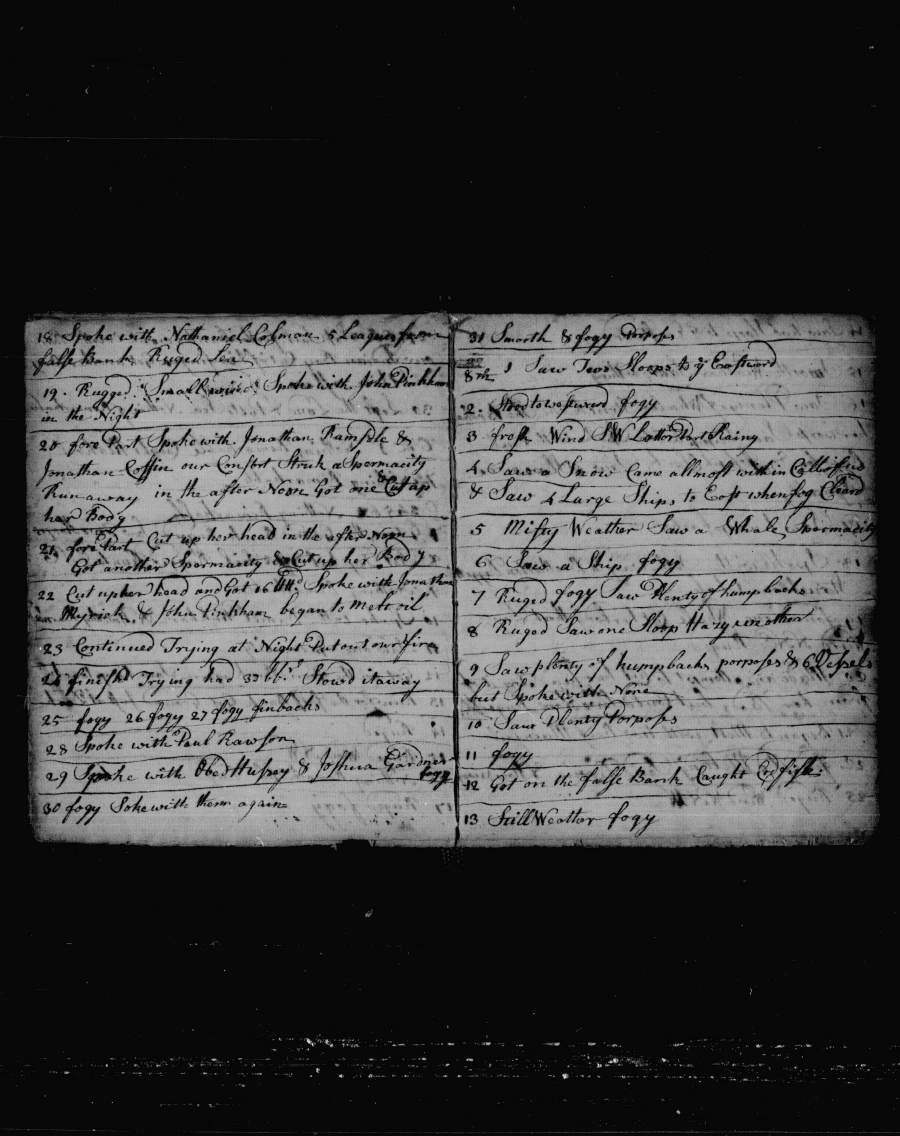 18 Spoke with Nathaniel Colman 5 Leagues from
false Bank Ruged Sea
19. Rugged Small wind Spoke with John Pinkham
in the Night
20 fore Part Spoke with Jonathan Ramsdle &
Jonathan Coffin our Consort Struk a Spermacity
Run away in the after Noon Got one & Cut up
her Body
21 fore Part Cut up her head in the after Noon
Got another Spermacity & Cut up her Body
22 Cut up her head and Got 16 Spoke with Jonathan
Myrick & John Pinkham began to Melt oil
23 Continued Trying at Night Put out our fire
24 finishd Trying had 33 bbs Stowd it away
25 fogy 26 fogy 27 fogy finbacks
28 Spoke with Paul Rawson
29 Spoke with Obed Hussey & Joshua Gardner
fogy
30 fogy Soke with them again
31 Smooth & fogy Porposs
8th 1 Saw Two Sloops to ye Eastward
2. Stood to westward fogy
3 fresh Wind SW Latter Part Rainy
4 Saw a Snow Came allmost within
& Saw 4 Large Ships to East when fog Cleard
5 Misty Weather Saw a Whale Spermacity
6 Saw a Ship fogy
7 Ruged fogy Saw Plenty of humpbacks
8 Ruged Saw one Sloop Hazy weather
9 Saw plenty of humpbacks porposes & 6 Vessels
but Spoke with None
10 Saw Plenty Porposs
11 fogy
12 Got on the false Bank Caught Codfish
13 Still Weather fogy